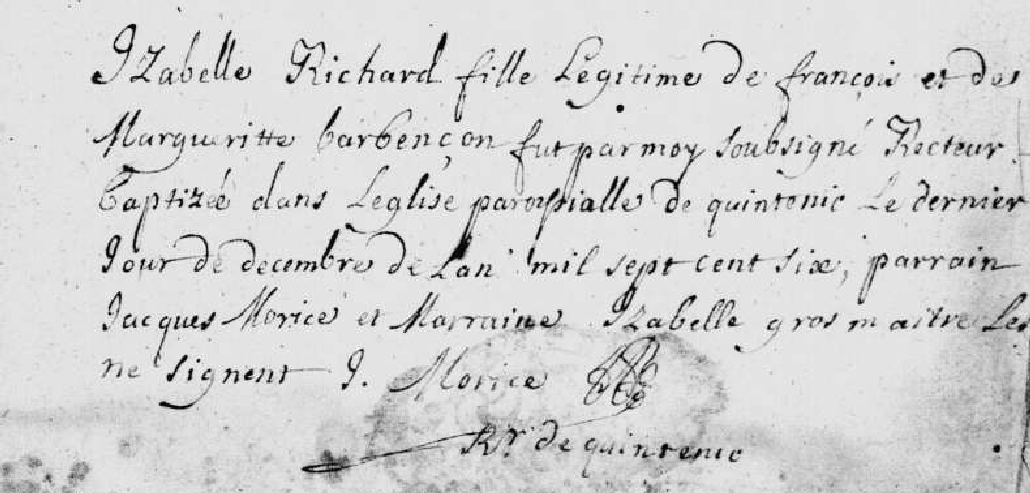 Izabelle Richard fille Legitime de françois et de
Margueritte barbençon fut par moy soubsigné Recteur
baptizée dans Leglise paroissialle de quintenic Le dernier
Jour de decembre de Lan mil sept cent six, parrain
Jacques Morice et Marraine Izabelle gros maitre Les
ne signent J. Morice
Rr. de quintenic